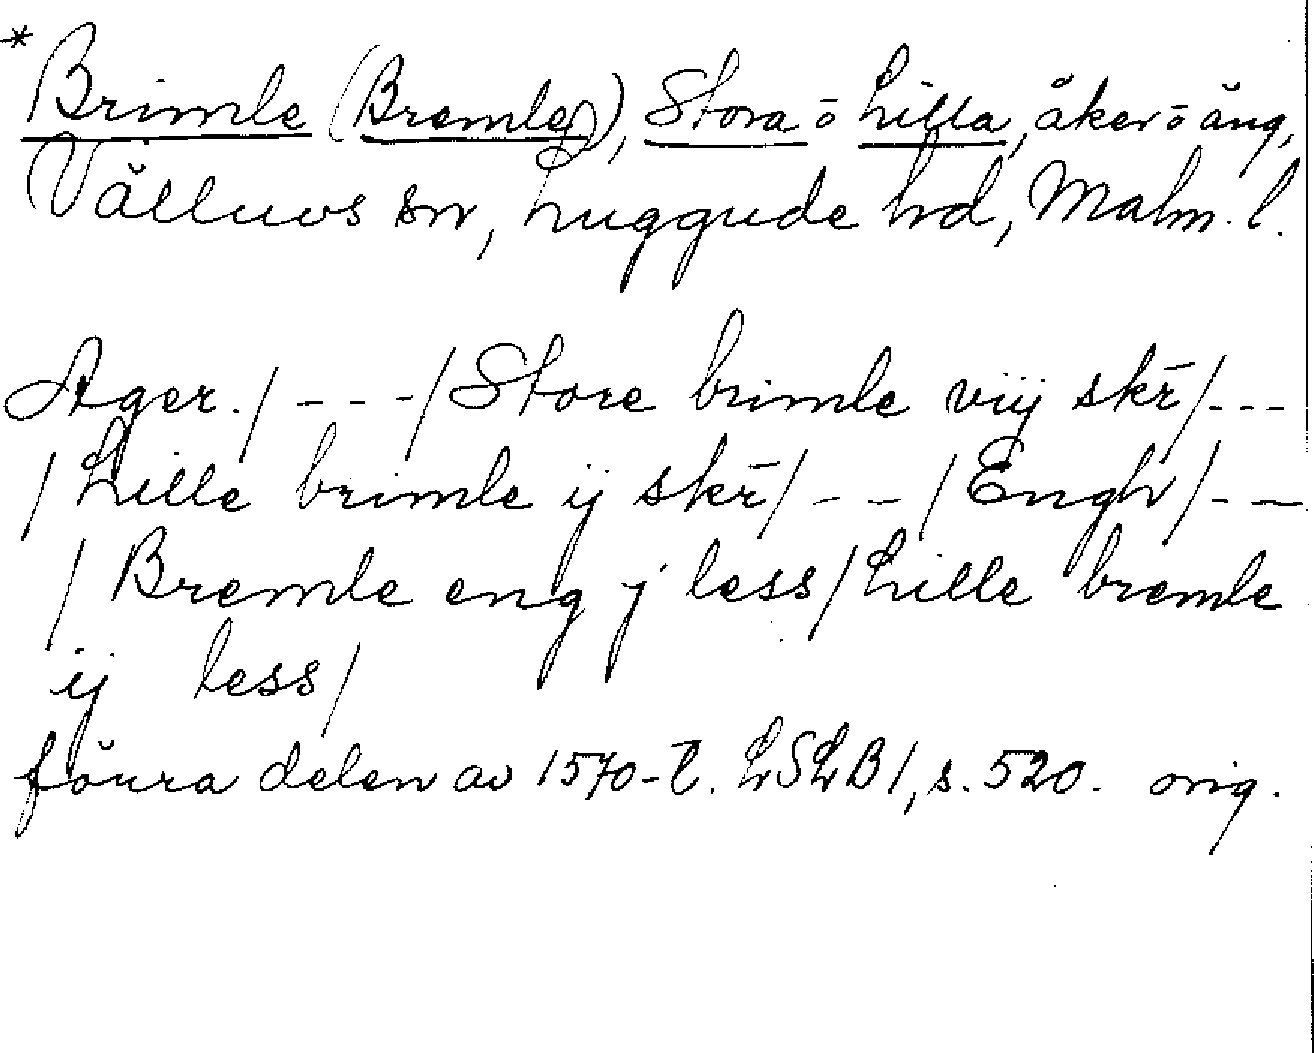 *Brimle (Bremle), Stora o Lilla, åker o äng,
Välluvs sn, Luggude hd, Malm. l.
Ager./ - - - /Store brimle vij skr̄/ - - -
/Lille brimle ij skr̄/ - - - /Engh/ - - -
/Bremle eng j less/Lille bremle
ij less/
förra delen av 1570-t. LSLB 1, s. 520. orig.